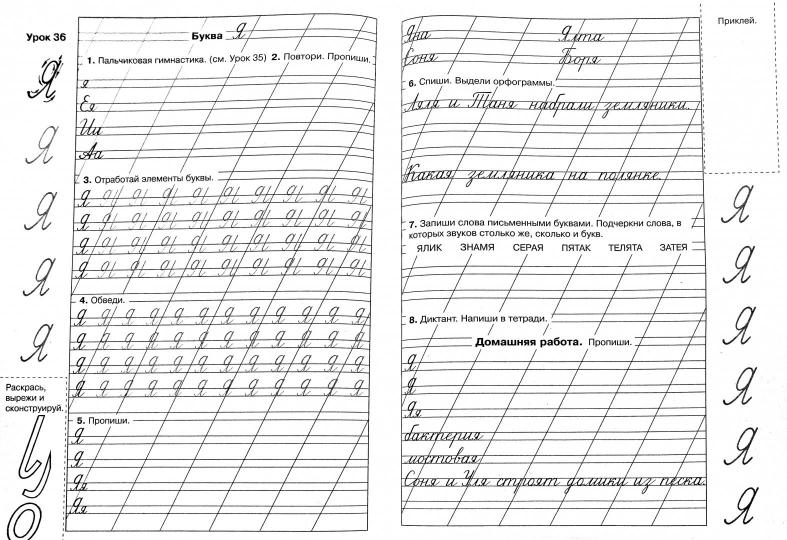 Урок 36
Буква Я
1. Пальчиковая гимнастика. (см. Урок 35) 2. Повтори. Пропиши.
я
Ея
Ии
Аа
3. Отработай элементы буквы.
Я Я Я Я Я Я Я Я Я Я
Я Я Я Я Я Я Я Я Я Я
Я Я Я Я Я Я Я Я Я Я
Я Я Я Я Я Я Я Я Я Я
4. Обведи.
Я Я Я Я Я Я Я Я Я Я Я Я Я
Я Я Я Я Я Я Я Я Я Я Я Я Я
Я Я Я Я Я Я Я Я Я Я Я Я Я
Я Я Я Я Я Я Я Я Я Я Я Я Я
5. Пропиши.
Я
Я
Яя
Яя
Я
Я
Я
Я
Я
Раскрась,
вырежи и
сконструируй.
Яна Ялта
Соня Боря
6. Спиши. Выдели орфограммы.
Ляля и Таня набрали земляники.
Какая земляника на полянке.
7. Запиши слова письменными буквами. Подчеркни слова, в
которых звуков столько же, сколько и букв.
ЯЛИК ЗНАМЯ СЕРАЯ ПЯТАК ТЕЛЯТА ЗАТЕЯ
8. Диктант. Напиши в тетради.
Домашняя работа. Пропиши.
Я
Я
Яя
бактерия
мостовая
Соня и Уля строят домики из песка.
Приклей.
Я
Я
Я
Я
Я
Я